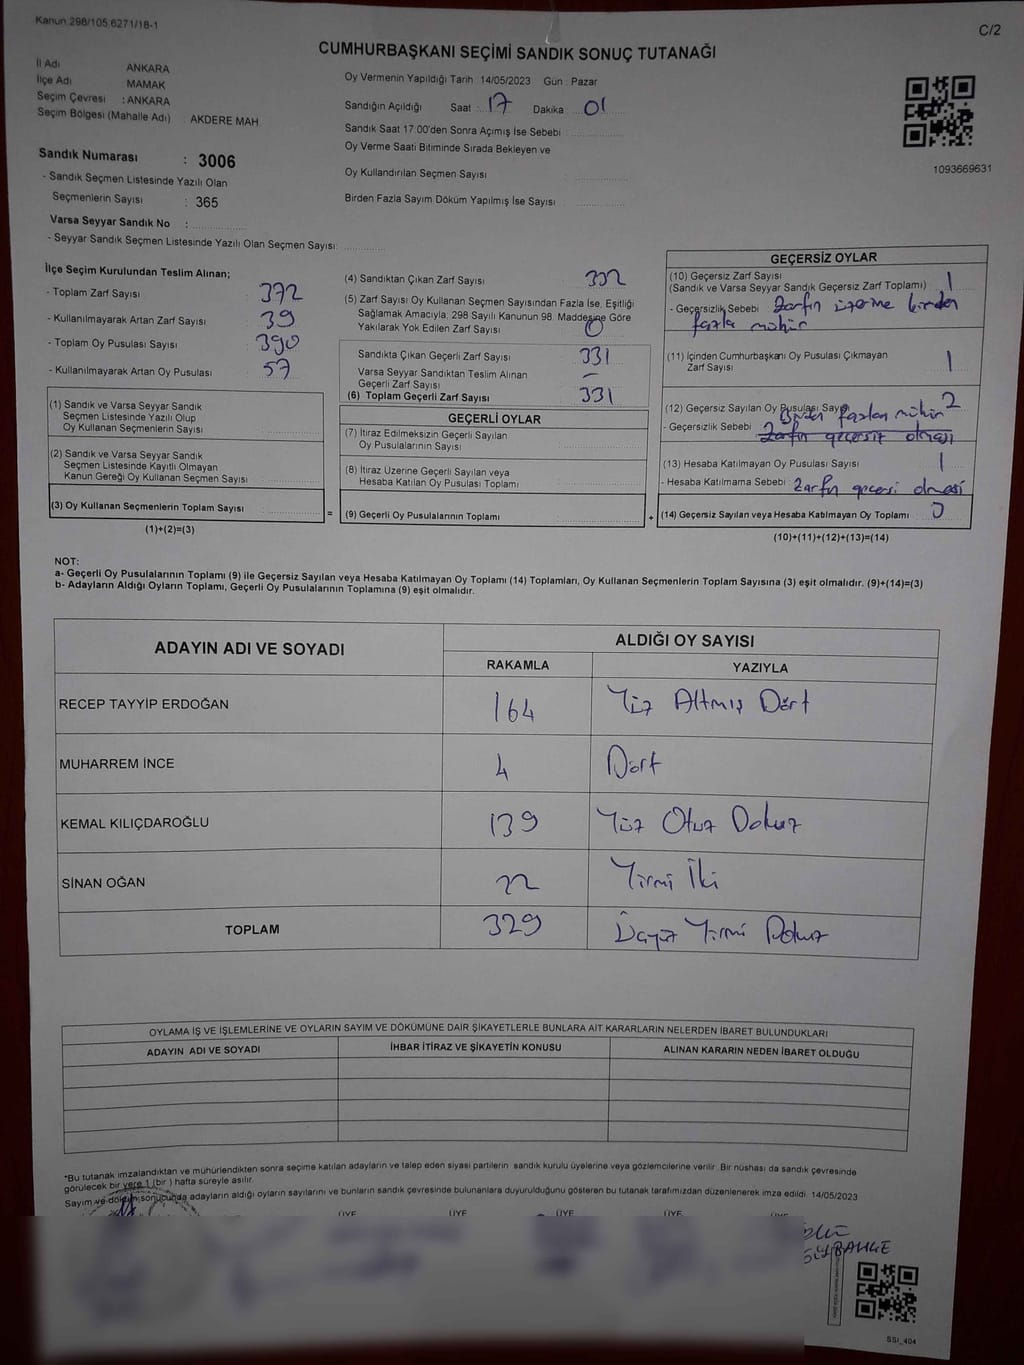 Kanun:298/105.6271/18-1
C/2
CUMHURBAŞKANI SEÇİMİ SANDIK SONUÇ TUTANAĞI
İl Adı ANKARA
İlçe Adı : MAMAK
Seçim Çevresi : ANKARA
Seçim Bölgesi (Mahalle Adı) : AKDERE MAH.
Oy Vermenin Yapıldığı Tarih 14/05/2023 Gün : Pazar
Sandığın Açıldığı Saat 17 Dakika 01
Sandık Saat 17.00'den Sonra Açımış İse Sebebi
Oy Verme Saati Bitiminde Sırada Bekleyen ve
Oy Kullandırılan Seçmen Sayısı :
Birden Fazla Sayım Döküm Yapılmış İse Sayısı
1093669631
Sandık Numarası : 3006
- Sandık Seçmen Listesinde Yazılı Olan
Seçmenlerin Sayısı : 365
Varsa Seyyar Sandık No :
- Seyyar Sandık Seçmen Listesinde Yazılı Olan Seçmen Sayısı:
İlçe Seçim Kurulundan Teslim Alınan;
- Toplam Zarf Sayısı 372
- Kullanılmayarak Artan Zarf Sayısı 39
- Toplam Oy Pusulası Sayısı 390
- Kullanılmayarak Artan Oy Pusulası 57
(1) Sandık ve Varsa Seyyar Sandık
Seçmen Listesinde Yazılı Olup
Oy Kullanan Seçmenlerin Sayısı
(2) Sandık ve Varsa Seyyar Sandık
Seçmen Listesinde Kayıtlı Olmayan
Kanun Gereği Oy Kullanan Seçmen Sayısı
(3) Oy Kullanan Seçmenlerin Toplam Sayısı
(1)+(2)=(3)
=
(4) Sandıktan Çıkan Zarf Sayısı 332
(5) Zarf Sayısı Oy Kullanan Seçmen Sayısından Fazla İse, Eşitliği
Sağlamak Amacıyla, 298 Sayılı Kanunun 98. Maddesine Göre
Yakılarak Yok Edilen Zarf Sayısı 0
Sandıkta Çıkan Geçerli Zarf Sayısı 331
Varsa Seyyar Sandıktan Teslim Alınan
Geçerli Zarf Sayısı –
(6) Toplam Geçerli Zarf Sayısı 331
GEÇERLİ OYLAR
(7) İtiraz Edilmeksizin Geçerli Sayılan
Oy Pusulalarının Sayısı
(8) İtiraz Üzerine Geçerli Sayılan veya
Hesaba Katılan Oy Pusulası Toplamı
(9) Geçerli Oy Pusulalarının Toplamı
+
GEÇERSİZ OYLAR
(10) Geçersiz Zarf Sayısı
(Sandık ve Varsa Seyyar Sandık Geçersiz Zarf Toplamı) 1
- Geçersizlik Sebebi Zarfın üzerine birden
fazla mühür
(11) İçinden Cumhurbaşkanı Oy Pusulası Çıkmayan
Zarf Sayısı 1
(12) Geçersiz Sayılan Oy Pusulası Sayısı 2
Birden fazla mühür
- Geçersizlik Sebebi Zarfın geçersiz olması
(13) Hesaba Katılmayan Oy Pusulası Sayısı 1
- Hesaba Katılmama Sebebi Zarfın olması
(14) Geçersiz Sayılan veya Hesaba Katılmayan Oy Toplamı
(10)+(11)+(12)+(13)=(14)
NOT:
a- Geçerli Oy Pusulalarının Toplamı (9) ile Geçersiz Sayılan veya Hesaba Katılmayan Oy Toplamı (14) Toplamları, Oy Kullanan Seçmenlerin Toplam Sayısına (3) eşit olmalıdır. (9)+(14)=(3)
b- Adayların Aldığı Oyların Toplamı, Geçerli Oy Pusulalarının Toplamına (9) eşit olmalıdır.
ADAYIN ADI VE SOYADI
ALDIĞI OY SAYISI
RAKAMLA YAZIYLA
RECEP TAYYİP ERDOĞAN 164 Yüz Altmış Dört
MUHARREM İNCE 4 Dört
KEMAL KILIÇDAROĞLU 139 Yüz Otuz Dokuz
SİNAN OĞAN 22 Yirmi İki
TOPLAM 329 Üçyüz Yirmi Dokuz
OYLAMA İŞ VE İŞLEMLERİNE VE OYLARIN SAYIM VE DÖKÜMÜNE DAİR ŞİKAYETLERLE BUNLARA AİT KARARLARIN NELERDEN İBARET BULUNDUKLARI
ADAYIN ADI VE SOYADI İHBAR İTİRAZ VE ŞİKAYETİN KONUSU ALINAN KARARIN NEDEN İBARET OLDUĞU
*Bu tutanak imzalandıktan ve mühürlendikten sonra seçime katılan adayların ve talep eden siyasi partilerin sandık kurulu üyelerine veya gözlemcilerine verilir. Bir nüshası da sandık çevresinde
görülecek bir yere 1 (bir ) hafta süreyle asılır.
Sayım ve döküm sonucunda adayların aldığı oyların sayılarını ve bunların sandık çevresinde bulunanlara duyurulduğunu gösteren bu tutanak tarafımızdan düzenlenerek imza edildi. 14/05/2023
ÜYE ÜYE ÜYE ÜYE ÜYE
SSI_404